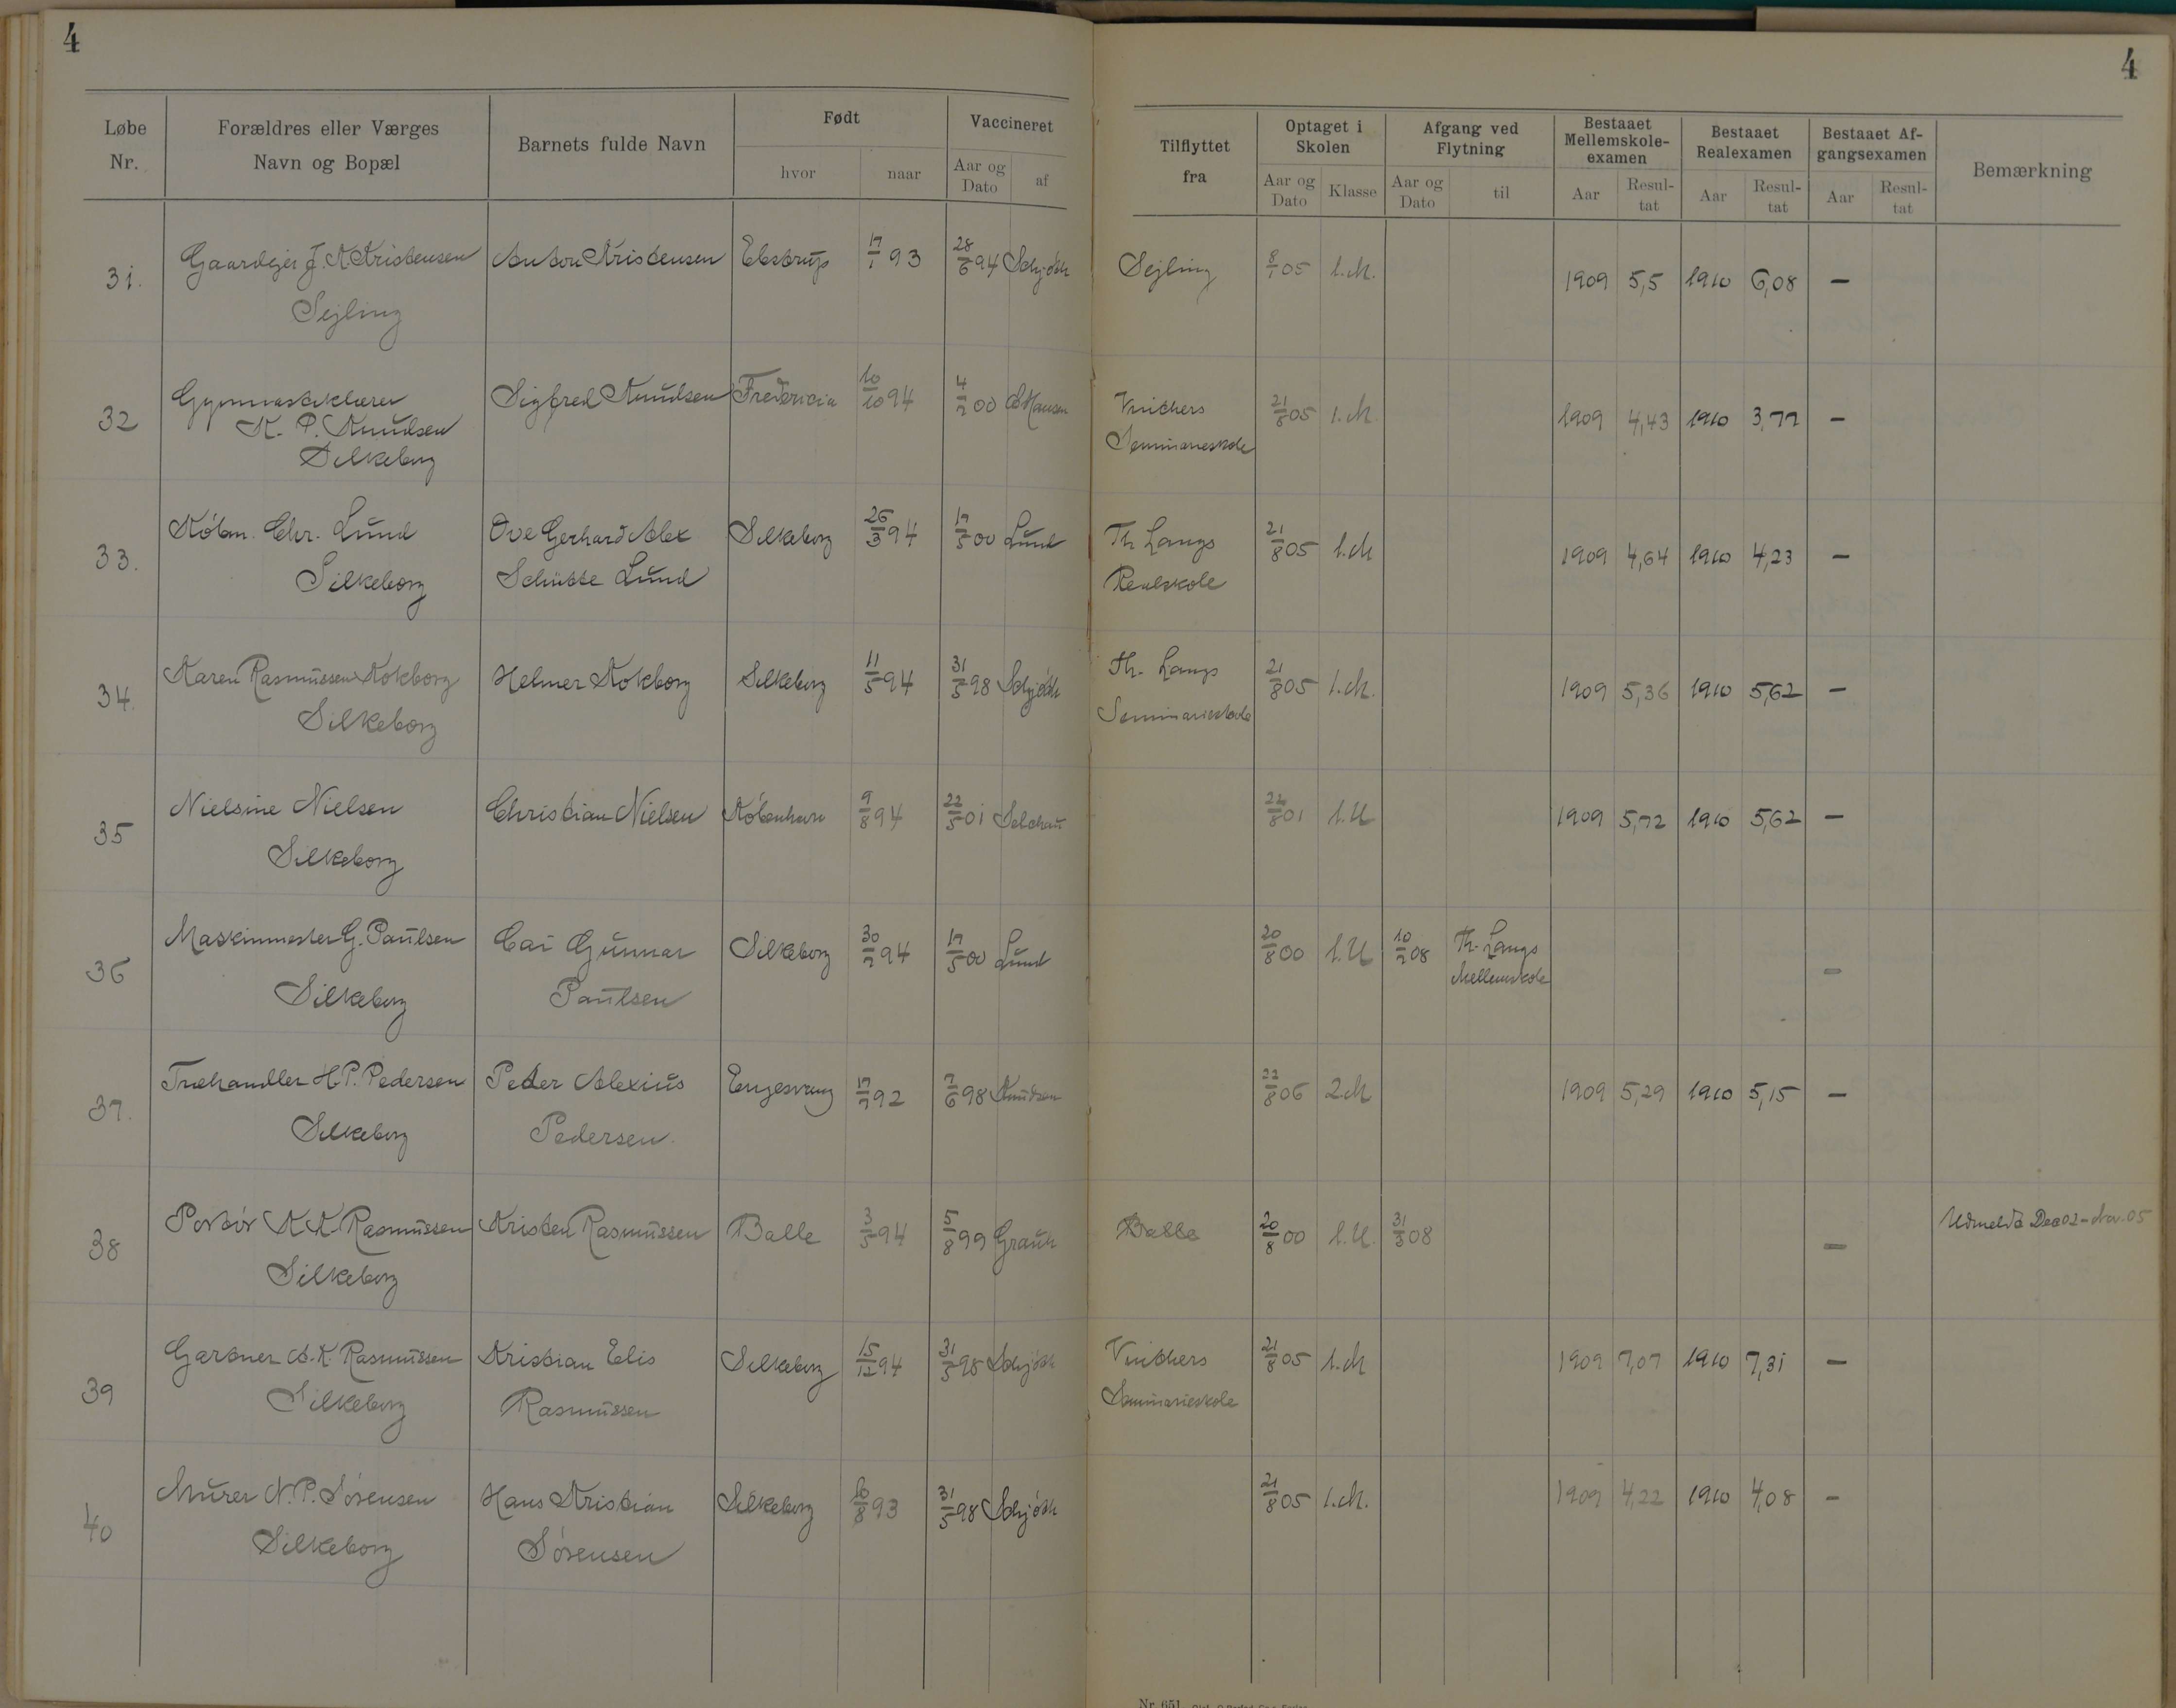 4
4
Løbe Nr. | Forældres eller Værges Navn og Bopæl | Barnets fulde Navn | Født hvor | naar | Vaccineret Aar og Dato | af | Tilflyttet fra | Optaget i Skolen Aar og Dato | Klasse | Afgang ved Flytning Aar og Dato | til | Bestaaet Mellemskole-examen Aar | Resul-tat | Bestaaet Realexamen Aar | Resul-tat | Bestaaet Af-gangsexamen Aar | Resul-tat | Bemærkning
31. Gaardejer J. K Kristensen Anton Kristensen Ebstrup 17/1 93 28/6 94 Schjøth Sejling 8/1 05 1.M. 1909 5,5 1910 6,08 —
Sejling
32 Gymnastiklærer Sigfred Knudsen Fredericia 10/10 94 4/7 00 Hansen Vinthers 21/8 05 1.M. 1909 4,43 1910 3,77 —
K. P. Knudsen Seminarieskole
Silkeborg
33. Købm. Chr. Lund Ove Gerhard Alex Silkeborg 26/3 94 17/5 00 Lund Th Langs 21/8 05 1.M 1909 4,64 1910 4,23 —
Silkeborg Schütte Lund Realskole
34. Karen Rasmussen Kokborg Helmer Kokborg Silkeborg 11/5 94 31/5 98 Schjøth Th. Langs 21/8 05 1.M. 1909 5,36 1910 5,62 —
Silkeborg Seminarieskole
35 Nielsine Nielsen Christian Nielsen København 9/8 94 22/5 01 Selchau 22/8 01 1.U 1909 5,72 1910 5,62 —
Silkeborg
36 Maskinmester G. Paulsen Cai Gunnar Silkeborg 30/7 94 17/5 00 Lund 20/8 00 1.U 10/2 08 Th. Langs —
Silkeborg Paulsen Mellemskole
37. Træhandler H P. Pedersen Peder Alexius Engesvang 17/7 92 7/6 98 Knudsen 22/8 06 2.M 1909 5,29 1910 5,15 —
Silkeborg Pedersen.
38 Portør K K Rasmussen Kristen Rasmussen Balle 3/5 94 5/8 99 Balle 20/8 00 1.U. 31/3 08 — Udmeldt Dec 02 - Nov. 05
Silkeborg
39 Gartner A. K. Rasmussen Kristian Elis Silkeborg 15/12 94 31/5 98 Schjøth Vinthers 21/8 05 1.M 1909 7,07 1910 7,31 —
Silkeborg Rasmussen Seminarieskole
40 Murer N. P. Sørensen Hans Kristian Silkeborg 16/8 93 31/5 98 Schjøth 21/8 05 1.M. 1909 4,22 1910 4,08 —
Silkeborg Sørensen
Nr. 651.